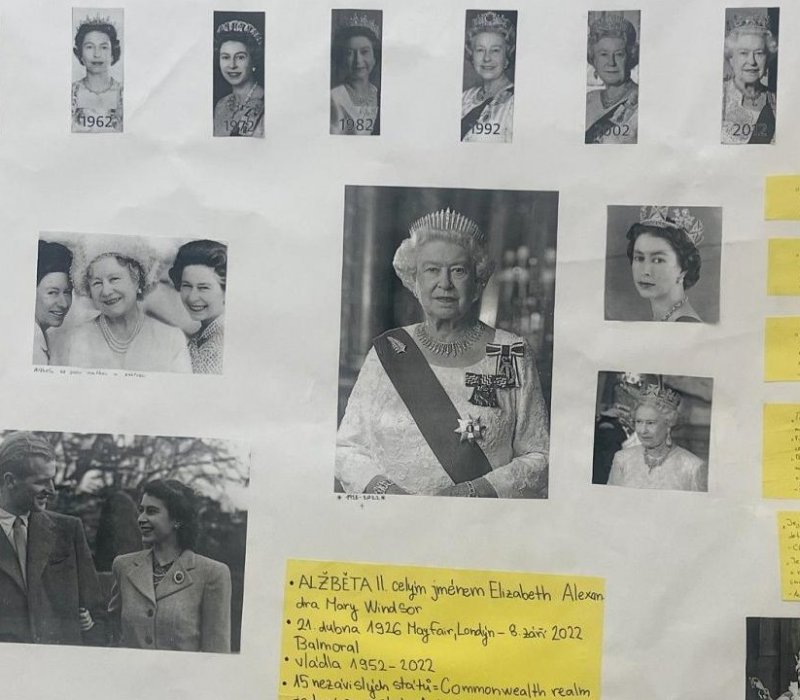 1962
1972
1982
1992
2002
2022
Alžběta se svou matkou a sestrou
* 1926-2022 *
• ALŽBĚTA II. celým jménem Elizabeth Alexan
dra Mary Windsor
• 21. dubna 1926 Mayfair, Londýn – 8. září 2022
Balmoral
• vládla 1952-2022
• 15 nezávislých států = Commonwealth realm